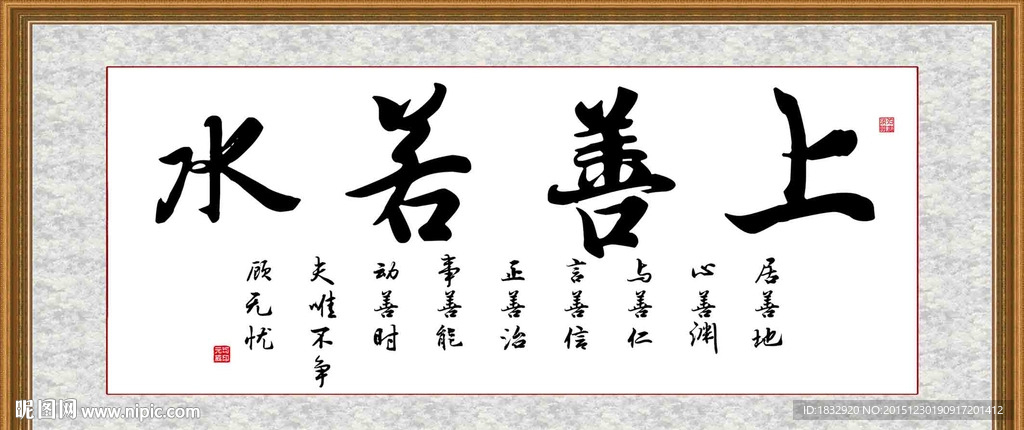 上善若水
居善地
心善渊
与善仁
言善信
正善治
事善能
动善时
夫唯不争
顾无忧
昵图网 www.nipic.com
ID:1832920 NO:20151230190917201412